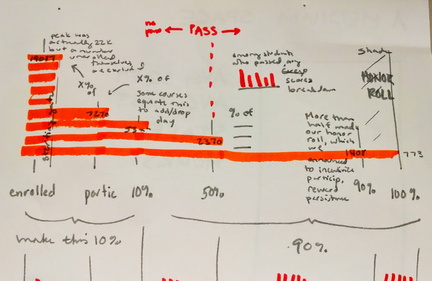 peak was
actually 22k
but a number
under
themselves
no
pass
← PASS →
X% of
X% of
some courses
equate this
to add/drop
day
among students
who passed, any
scores
breakdown
% of
Shade
HONOR
ROLL
7270
2370
1408
773
More than
half made
our honor
roll, which
we
announced
to incentivize
particip,
reward
persistence
enrolled
partic
10%
50%
90%
100%
make this 10%
90%